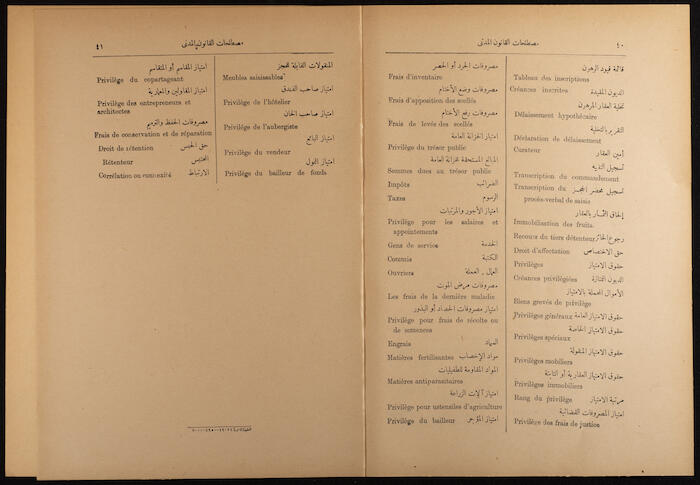 ٤٠
مصطلحات القانون المدنى
قائمة قيود الرهون
Tableau des inscriptions
الديون المقيدة
Créances inscrites
تخلية العقار المرهون
Délaissement hypothécaire
التقرير بالتخلية
Déclaration de délaissement
أمين العقار
Curateur
تسجيل التنبيه
Transcription du commandement
تسجيل محضر الحجز
Transcription du procès-verbal de saisie
إلحاق الثمار بالعقار
Immobilisation des fruits
رجوع الحائز
Recours du tiers détenteur
حق الاختصاص
Droit d'affectation
حقوق الامتياز
Privilèges
الديون الممتازة
Créances privilégiées
الأموال المحملة بالامتياز
Biens grevés de privilège
حقوق الامتياز العامة
Privilèges généraux
حقوق الامتياز الخاصة
Privilèges spéciaux
حقوق الامتياز المنقولة
Privilèges mobiliers
حقوق الامتياز العقارية أو الثابتة
Privilèges immobiliers
مرتبة الامتياز
Rang du privilège
امتياز المصروفات القضائية
Privilège des frais de justice
مصروفات الجرد أو الحصر
Frais d'inventaire
مصروفات وضع الأختام
Frais d'apposition des scellés
مصروفات رفع الأختام
Frais de levée des scellés
امتياز الخزانة العامة
Privilège du trésor public
المبالغ المستحقة للخزانة العامة
Sommes dues au trésor public
الضرائب
Impôts
الرسوم
Taxes
امتياز الأجور والمرتبات
Privilège pour les salaires et
appointements
الخدمة
Gens de service
الكتبة
Commis
العمال . العملة
Ouvriers
مصروفات مرض الموت
Les frais de la dernière maladie
امتياز مصروفات الحصاد أو البذور
Privilège pour frais de récolte ou
de semences
السماد
Engrais
مواد الإخصاب
Matières fertilisantes
المواد المقاومة للطفيليات
Matières antiparasitaires
امتياز آلات الزراعة
Privilège pour ustensiles d'agriculture
امتياز المؤجر
Privilège du bailleur
٤١
مصطلحات القانون المدنى
المنقولات القابلة للحجز
Meubles saisissables
امتياز صاحب الفندق
Privilège de l'hôtelier
امتياز صاحب الخان
Privilège de l'aubergiste
امتياز البائع
Privilège du vendeur
امتياز الممول
Privilège du bailleur de fonds
امتياز المقاسم أو المتقاسم
Privilège du copartageant
امتياز المقاولين والمعمارية
Privilège des entrepreneurs et
architectes
مصروفات الحفظ والترميم
Frais de conservation et de réparation
حق الحبس
Droit de rétention
المحتبس
Rétenteur
الارتباط
Corrélation ou connexité